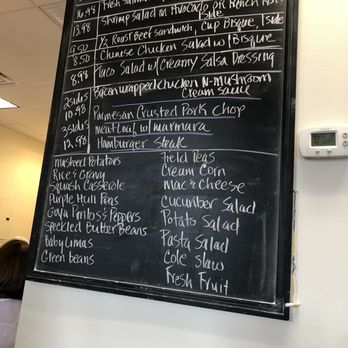 16.98 Fresh Salmon
Shrimp Salad in Avocado OR French Roll
13.98 1side
9.50 ½ Roast Beef Sandwich, Cup Bisque, 1side
8.50 Chinese Chicken Salad w/ Bisque
8.98 Taco Salad w/ Creamy Salsa Dressing
2sides Bacon wrapped chicken n-mushroom
10.98 Cream sauce
Parmesan Crusted Pork Chop
3sides meat Loaf w/ marinara
12.98 Hamburger steak
Mashed Potatoes Field Peas
Rice & Gravy Cream Corn
Squash Casserole Mac & cheese
Purple Hull Peas Cucumber Salad
& Peppers Potato Salad
Speckled Butter Beans Pasta Salad
Baby Limas Cole Slaw
Green beans Fresh Fruit